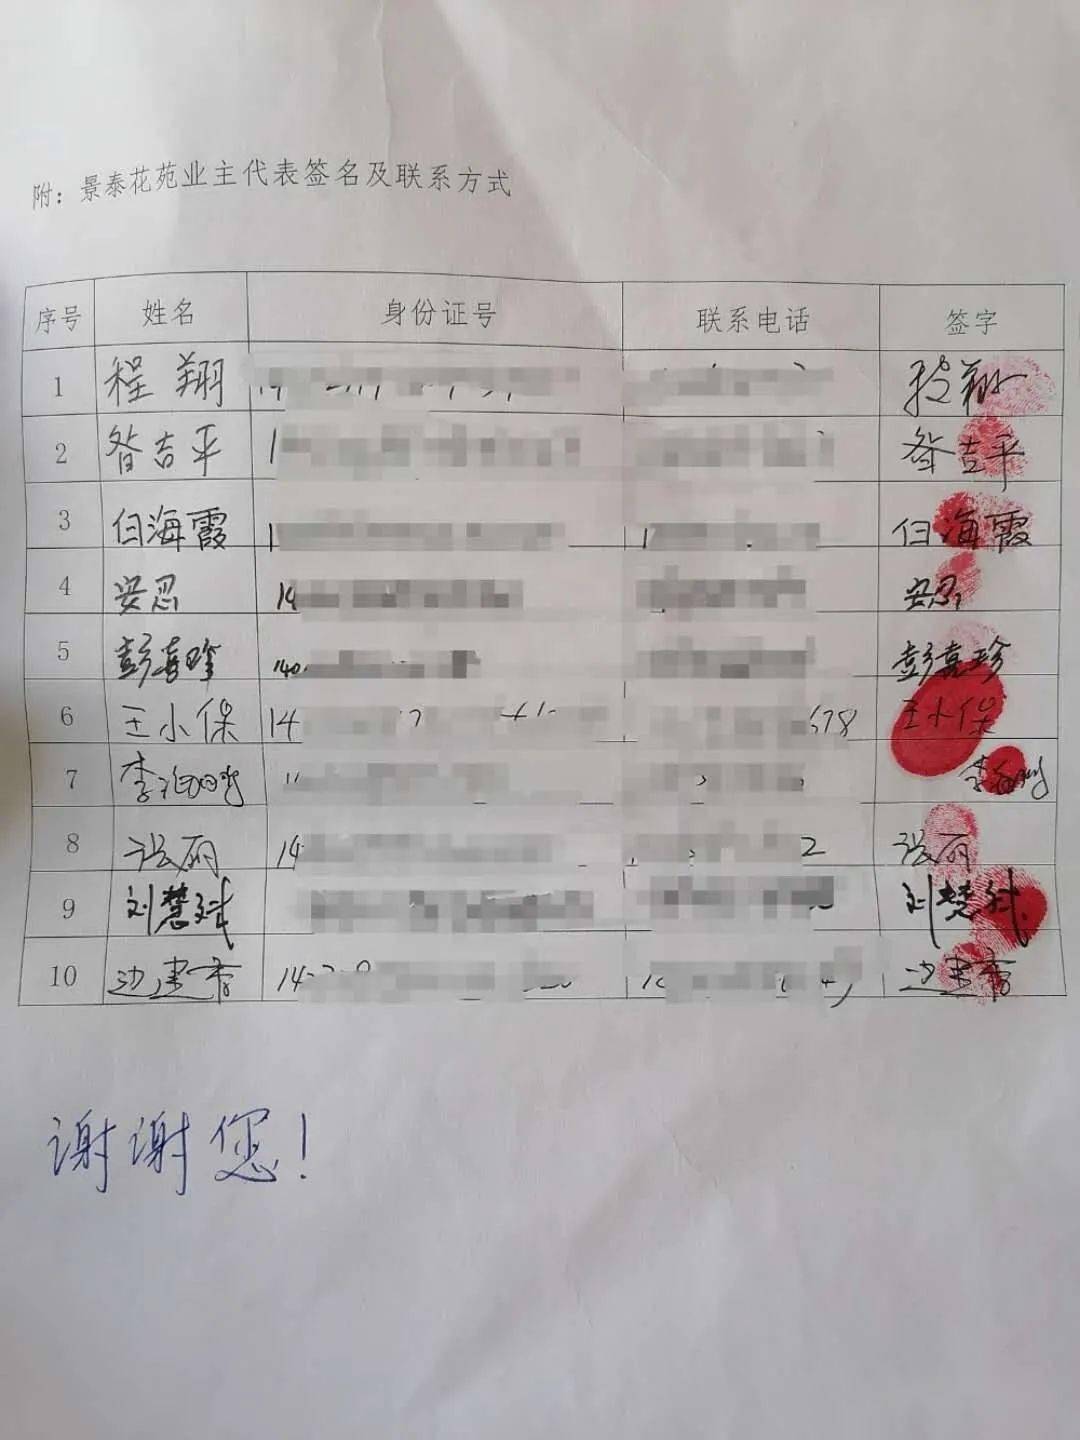 附：景泰花苑业主代表签名及联系方式
序号 姓名 身份证号 联系电话 签字
1 程翔 程翔
2 昝吉平 昝吉平
3 白海霞 白海霞
4 安忍 14 安忍
5 彭喜珍 140 彭喜珍
6 王小保 14 678 王小保
7 李
8 张丽 14 2 张丽
9 刘慧斌 刘慧斌
10 边建香 14 边建香
谢谢您！